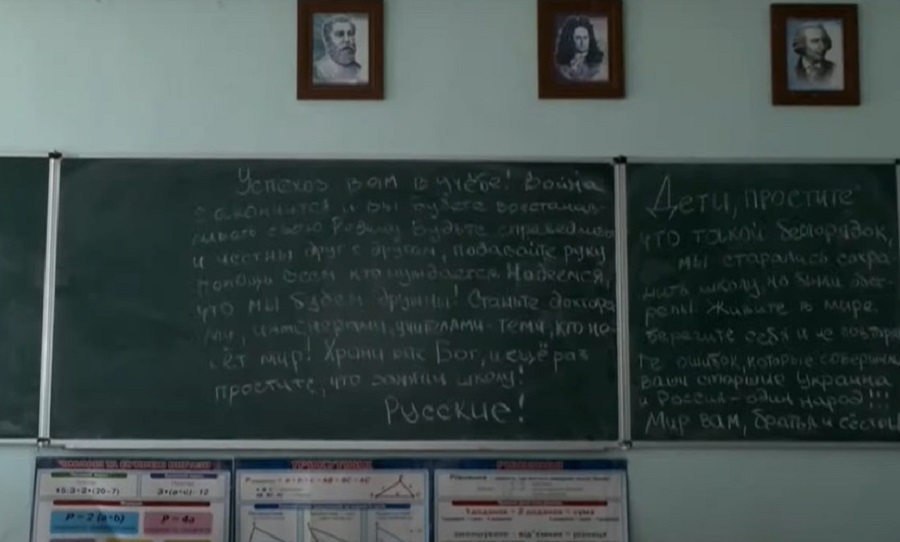 Успехов вам в учёбе! Война
закончится и вы будете восстанав-
ливать свою Родину будьте справедливы
и честны друг с другом, подавайте руку
помощи всем кто нуждается Надеемся,
что мы будем дружны! Станьте доктора-
ми, инженерами, учителами - теми, кто не-
сёт мир! Храни вас Бог, и ещё раз
простите, что заняли школу!
Русские!
Дети, простите
что такой беспорядок,
мы старались сохра-
нить школу, но были обст-
релы! Живите в мире
берегите себя и не повторяй
те ошибок, которые совершили
ваши старшие Украина
и Россия - один народ!!!
Мир вам, братья и сёстры
P = 2 (a+b)
P = 4a
1 доданок + 2 доданок = сума